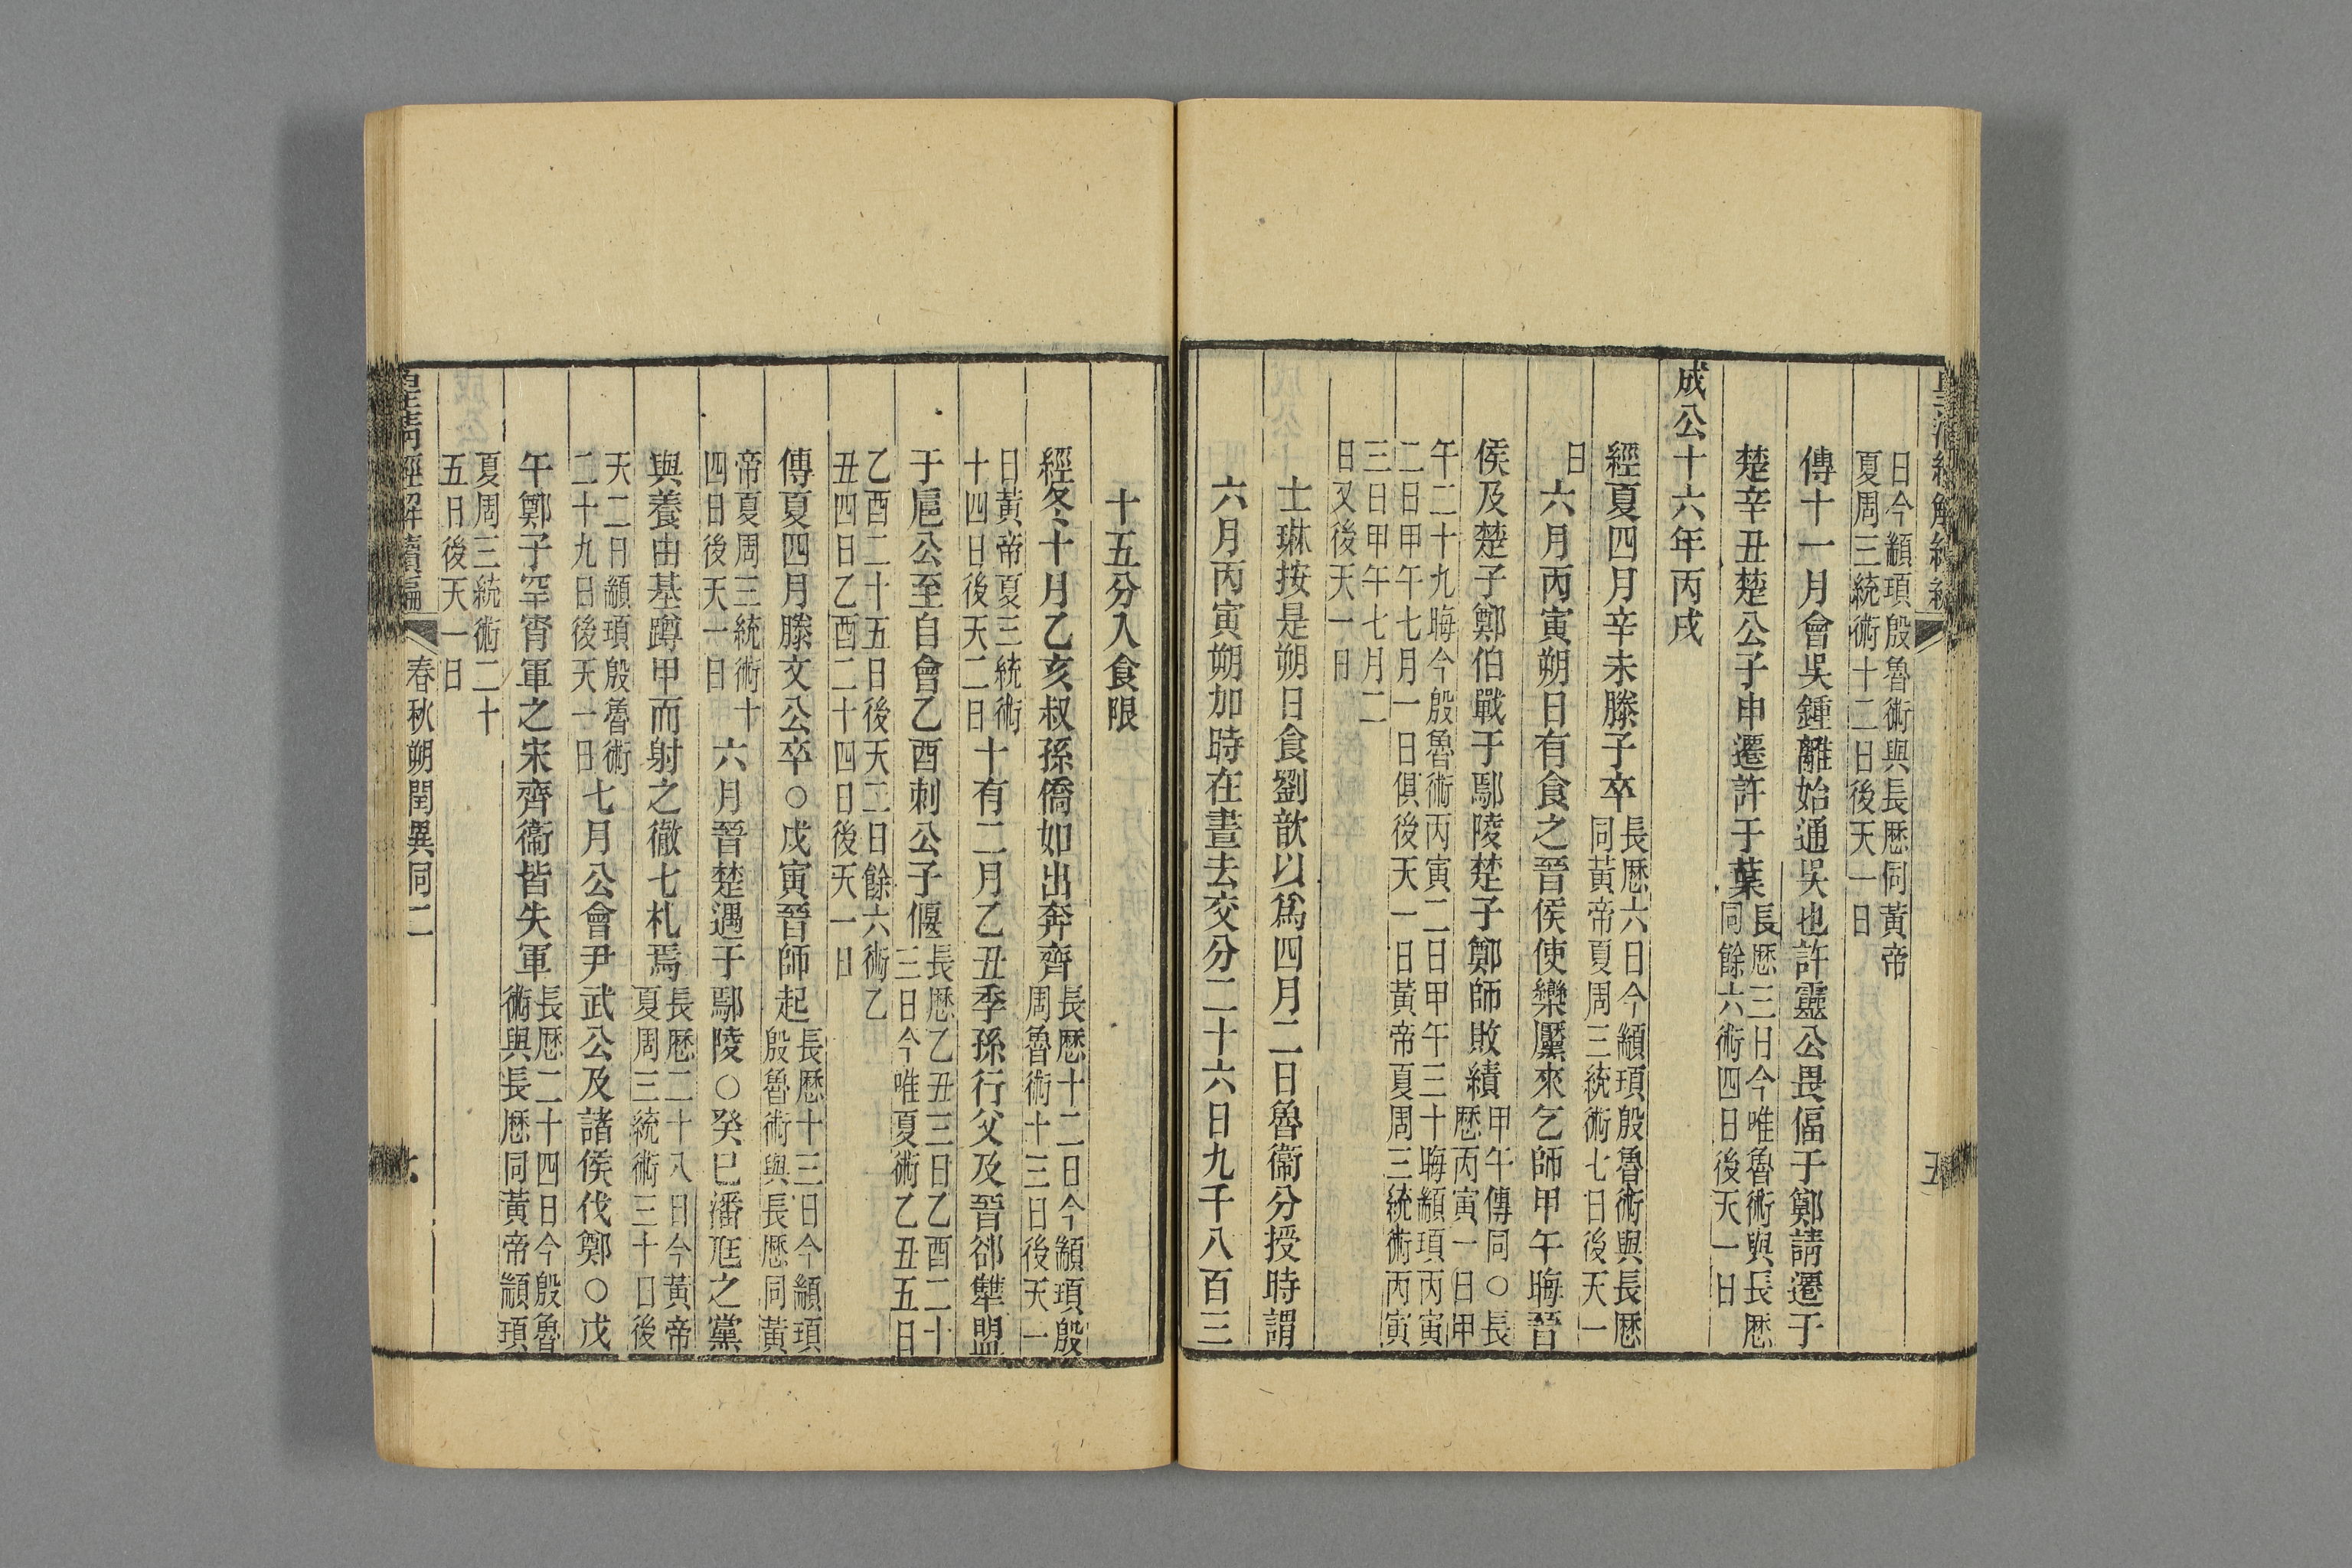 皇清經解續編
五
日今顓頊殷魯術與長厯同黃帝
夏周三統術十二日後天一日
傳十一月會吳鍾離始通吳也許靈公畏偪于鄭請遷于
楚辛丑楚公子申遷許于葉
長厯三日今唯魯術與長厯
同餘六術四日後天一日
成公十六年丙戌
經夏四月辛未滕子卒
長厯六日今顓頊殷魯術與長厯
同黃帝夏周三統術七日後天一
日
六月丙寅朔日有食之晉侯使欒黶來乞師甲午晦晉
侯及楚子鄭伯戰于鄢陵楚子鄭師敗績
甲午傳同○長
厯丙寅一日甲
午二十九晦今殷魯術丙寅二日甲午三十晦顓頊丙寅
二日甲午七月一日俱後天一日黃帝夏周三統術丙寅
三日甲午七月二
日又後天一日
士琳按是朔日食劉歆以爲四月二日魯衞分授時謂
六月丙寅朔加時在晝去交分二十六日九千八百三
十五分入食限
經冬十月乙亥叔孫僑如出奔齊
長厯十二日今顓頊殷
周魯術十三日後天一
日黃帝夏三統術
十四日後天二日
十有二月乙丑季孫行父及晉郤犫盟
于扈公至自會乙酉刺公子偃
長厯乙丑三日乙酉二十
三日今唯夏術乙丑五日
乙酉二十五日後天二日餘六術乙
丑四日乙酉二十四日後天一日
傳夏四月滕文公卒○戊寅晉師起
長厯十三日今顓頊
殷魯術與長厯同黃
帝夏周三統術十
四日後天一日
六月晉楚遇于鄢陵○癸巳潘尫之黨
與養由基蹲甲而射之徹七札焉
長厯二十八日今黃帝
夏周三統術三十日後
天二日顓頊殷魯術
二十九日後天一日
七月公會尹武公及諸侯伐鄭○戊
午鄭子罕宵軍之宋齊衞皆失軍
長厯二十四日今殷魯
術與長厯同黃帝顓頊
夏周三統術二十
五日後天一日
皇清經解續編
春秋朔閏異同二